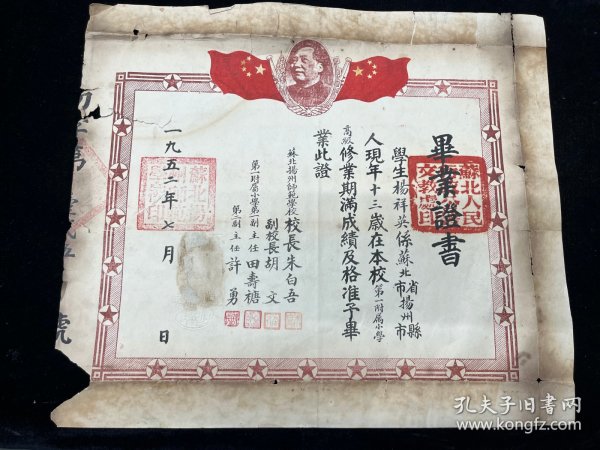 畢業證書
學生楊祥英係蘇北省揚州縣
市　市
人現年十三歲在本校第一附屬小學
高級修業期滿成績及格准予畢
業此證
蘇北揚州師範學校校長朱白吾
副校長胡文
第一附屬小學第一副主任田壽穗
第二副主任許勇
一九五二年七月　日
蘇北人民
文教處印
號
孔夫子旧书网
www.kongfz.com